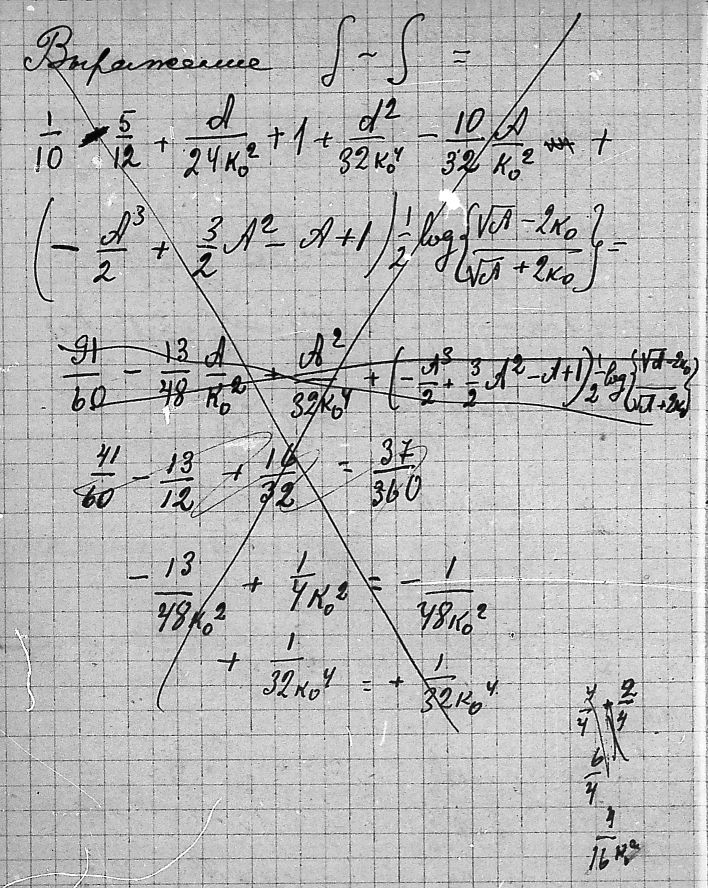 Выражение ∫ ~ ∫ =
1/10 - 5/12 + A/(24κ₀²) + 1 + A²/(32κ₀⁴) - 10/32 A/κ₀² +
(- A³/2 + 3/2 A² - A + 1) 1/2 log{(√A - 2κ₀)/(√A + 2κ₀)} =
91/60 - 13/48 A/κ₀² + A²/(32κ₀⁴) + (- A³/2 + 3/2 A² - A + 1) 1/2 log{(√A - 2κ₀)/(√A + 2κ₀)}
41/60 - 13/12 + 16/32 = 37/360
- 13/(48κ₀²) + 1/(4κ₀²) = - 1/(48κ₀²)
+ 1/(32κ₀⁴) = + 1/(32κ₀⁴)
2/4
6/4